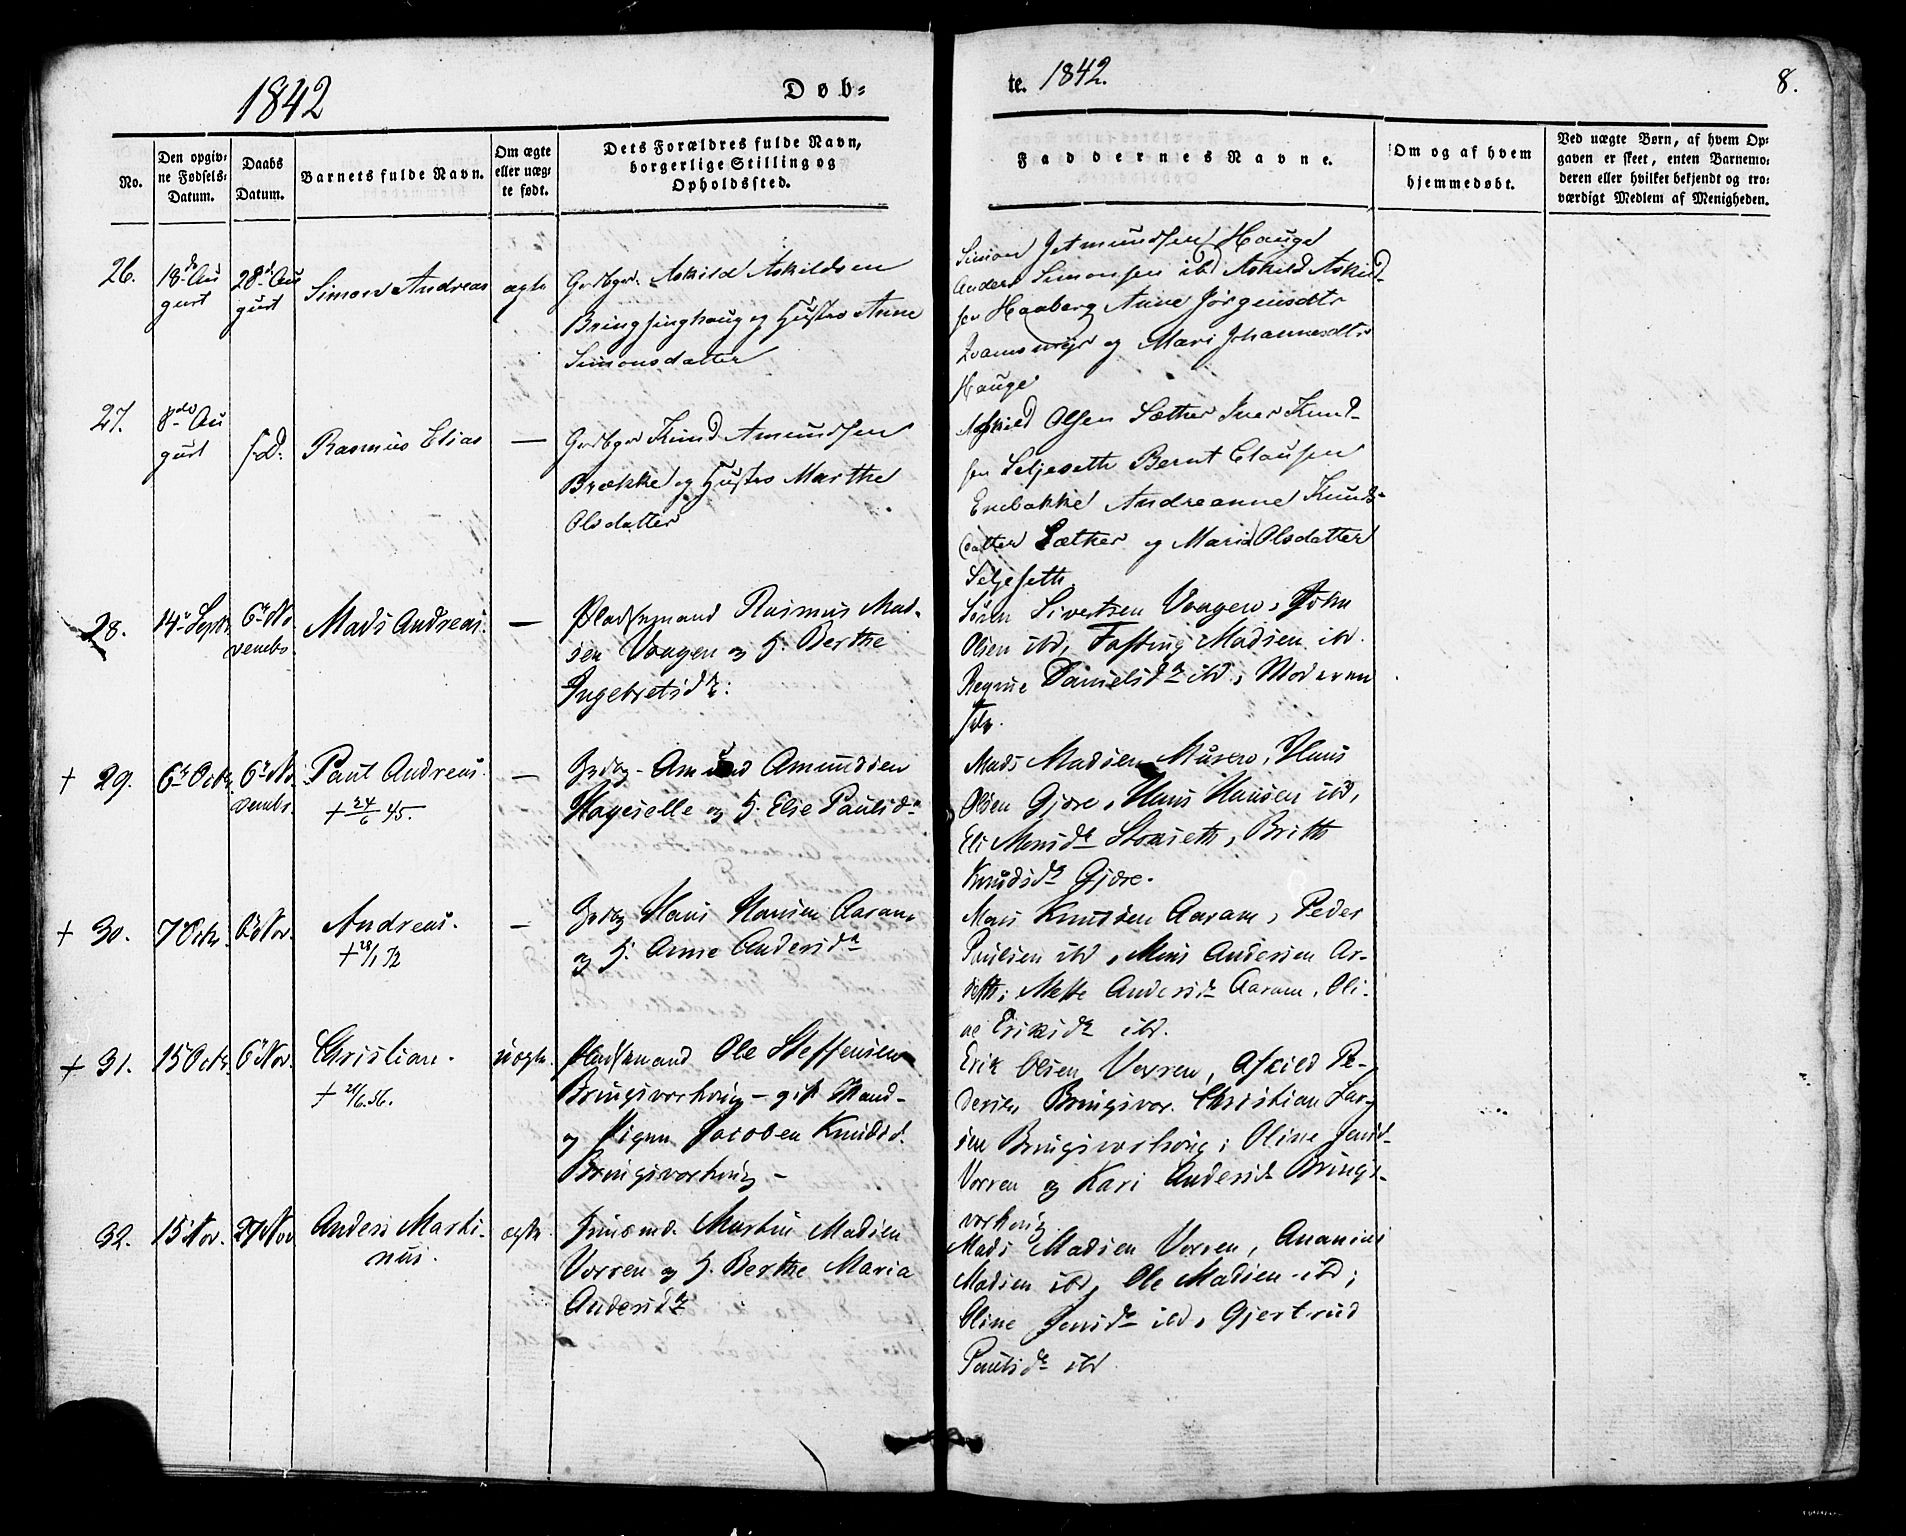 1842
Døb=
te. 1842.
8.
No.
Den opgiv=
ne Fødsels=
Datum.
Daabs
Datum.
Barnets fulde Navn.
Om ægte
eller uæg=
te født.
Dets Forældres fulde Navn,
borgerlige Stilling og
Opholdssted.
Faddernes Navne.
Om og af hvem
hjemmedøbt.
Ved uægte Børn, af hvem Op=
gaven er skeet, enten Barnemo=
deren eller hvilket bekjendt og tro=
værdigt Medlem af Menigheden.
26.
18de Au
gust
28de Au
gust
Simon Andreas
ægte
Askild Askildsen
Bringsinghaug og Hustro Anne
Simonsdatter
Simon Jetmundsen Hauge
Anders Simonsen ibd Askild Askild-
sen Haaberg Anne Jørgensdtr
og Mari Johannesdtr
Hauge
27.
8de Au
gust
s.d.
Rasmus Elias
—
Grdbgr Knud Amundsen
Brække og Hustro Marthe
Olsdatter
Askild Olsen Sæther Iver Knud-
sen Seljeseth Bernt Clausen
Enebakke Andreanne Knuds-
datter Sæther og Maria Olsdatter
Seljeseth
28.
14de Septr
6te No
vembr
Mads Andreas.
—
Pladsmand Rasmus Mad-
sen Vaagen og H. Berthe
Ingebretsdr:
Søren Sivertsen Vaagen, John
Olsen ibd, Fasting Madsen ibd.
Regine Danielsdr ibd, Moderen
selv.
+ 29.
6te Octr.
6te No
vembr.
Paul Andreas.
+ 24/6 45.
—
Grdbg- Amund Amundsen
Hageselle og H. Else Paulsdr
Mads Madsen Musew, Hans
Olsen Gjøre, Hans Hansen ibd,
Eli Monsdr Storseth, Brithe
Knudsdr Gjøre.
+ 30.
7 Octr.
6 Nov.
Andreas.
+ 28/1 72
—
Grdbg Hans Hansen Aaram
og H. Anne Andersdr
Mons Knudsen Aaram, Peder
Paulsen ibd, Mons Andersen Ar-
seth; Mette Andersdr Aaram, Oli-
ne Eriksdr ibd.
+ 31.
15 Octr.
6 Nov.
Christian.
+ 21/6.56.
uægte.
Pladsmand Ole Steffensen
Bringsvorhoug - gift Mand -
og Pigen Jacoben Knudsd.
Bringsvorhoug -
Erik Olsen Vorren, Askild Pe-
dersen Bringsvor. Christian Lar-
sen Bringsvorhoug; Oline Jensd-
Vorren og Kari Andersdr Brings-
vorhoug
32.
15 Nov.
27 Nov
Anders Marti-
nus.
ægte.
Huusmd. Martin Madsen
Vorren og H. Berthe Maria
Andersdr
Mads Madsen Vorren, Ananias
Madsen ibd, Ole Madsen ibd;
Oline Jensdr ibd, Gjertrud
Paulsdr ibd